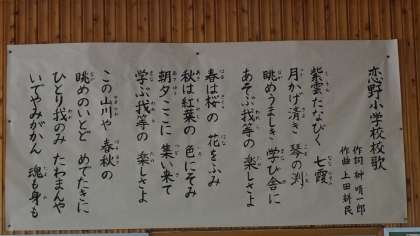 恋野小学校校歌
作詞 舛 晴一郎
作曲 上田耕民
紫雲たなびく 七霞
月かげ清き 琴の渕
眺めうましき 学び舎に
あそぶ我等の 楽しさよ
春は桜の 花をふみ
秋は紅葉の 色にそみ
朝夕ここに 集い来て
学ぶ我等の 楽しさよ
この山川や 春秋の
眺めのいとど めでたきに
ひとり我のみ たわまんや
いでやみがかん 魂も身も